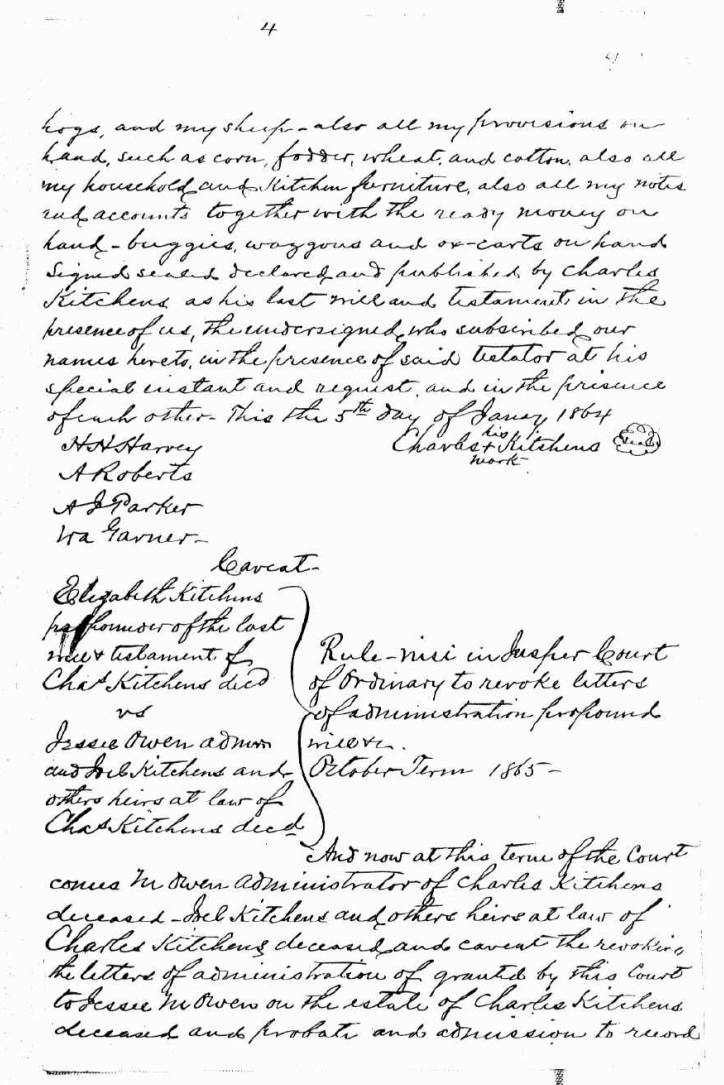 4
hogs, and my sheep - also all my provisions on
hand, such as corn, fodder, wheat, and cotton, also all
my household and Kitchen furniture, also all my notes
and accounts together with the ready money on
hand - buggies, waggons and ox-carts on hand
Signed sealed declared and published by Charles
Kitchens as his last will and testament in the
presence of us, the undersigned, who subscribed our
names hereto, in the presence of said testator at his
special instant and request, and in the presence
of each other - This the 5th day of Janay 1864
H H Harvey
Charles his + mark Kitchens Seal
A Roberts
A J Parker
Ira Garner -
Caveat -
Elizabeth Kitchens
propounder of the last
will & testament of
Chas Kitchens decd
vs
Jessee Owen admor
and Joel Kitchens and
others heirs at law of
Chas Kitchens decd
Rule - nisi in Jasper Court
of Ordinary to revoke letters
of administration propound
will &c.
October Term 1865 -
And now at this term of the Court
comes M Owen administrator of Charles Kitchens
deceased - Joel Kitchens and others heirs at law of
Charles Kitchens deceased and caveat the revoking
the letters of administration of grantd by this Court
to Jessee M Owen on the estate of Charles Kitchens
deceased and probate and admission to record